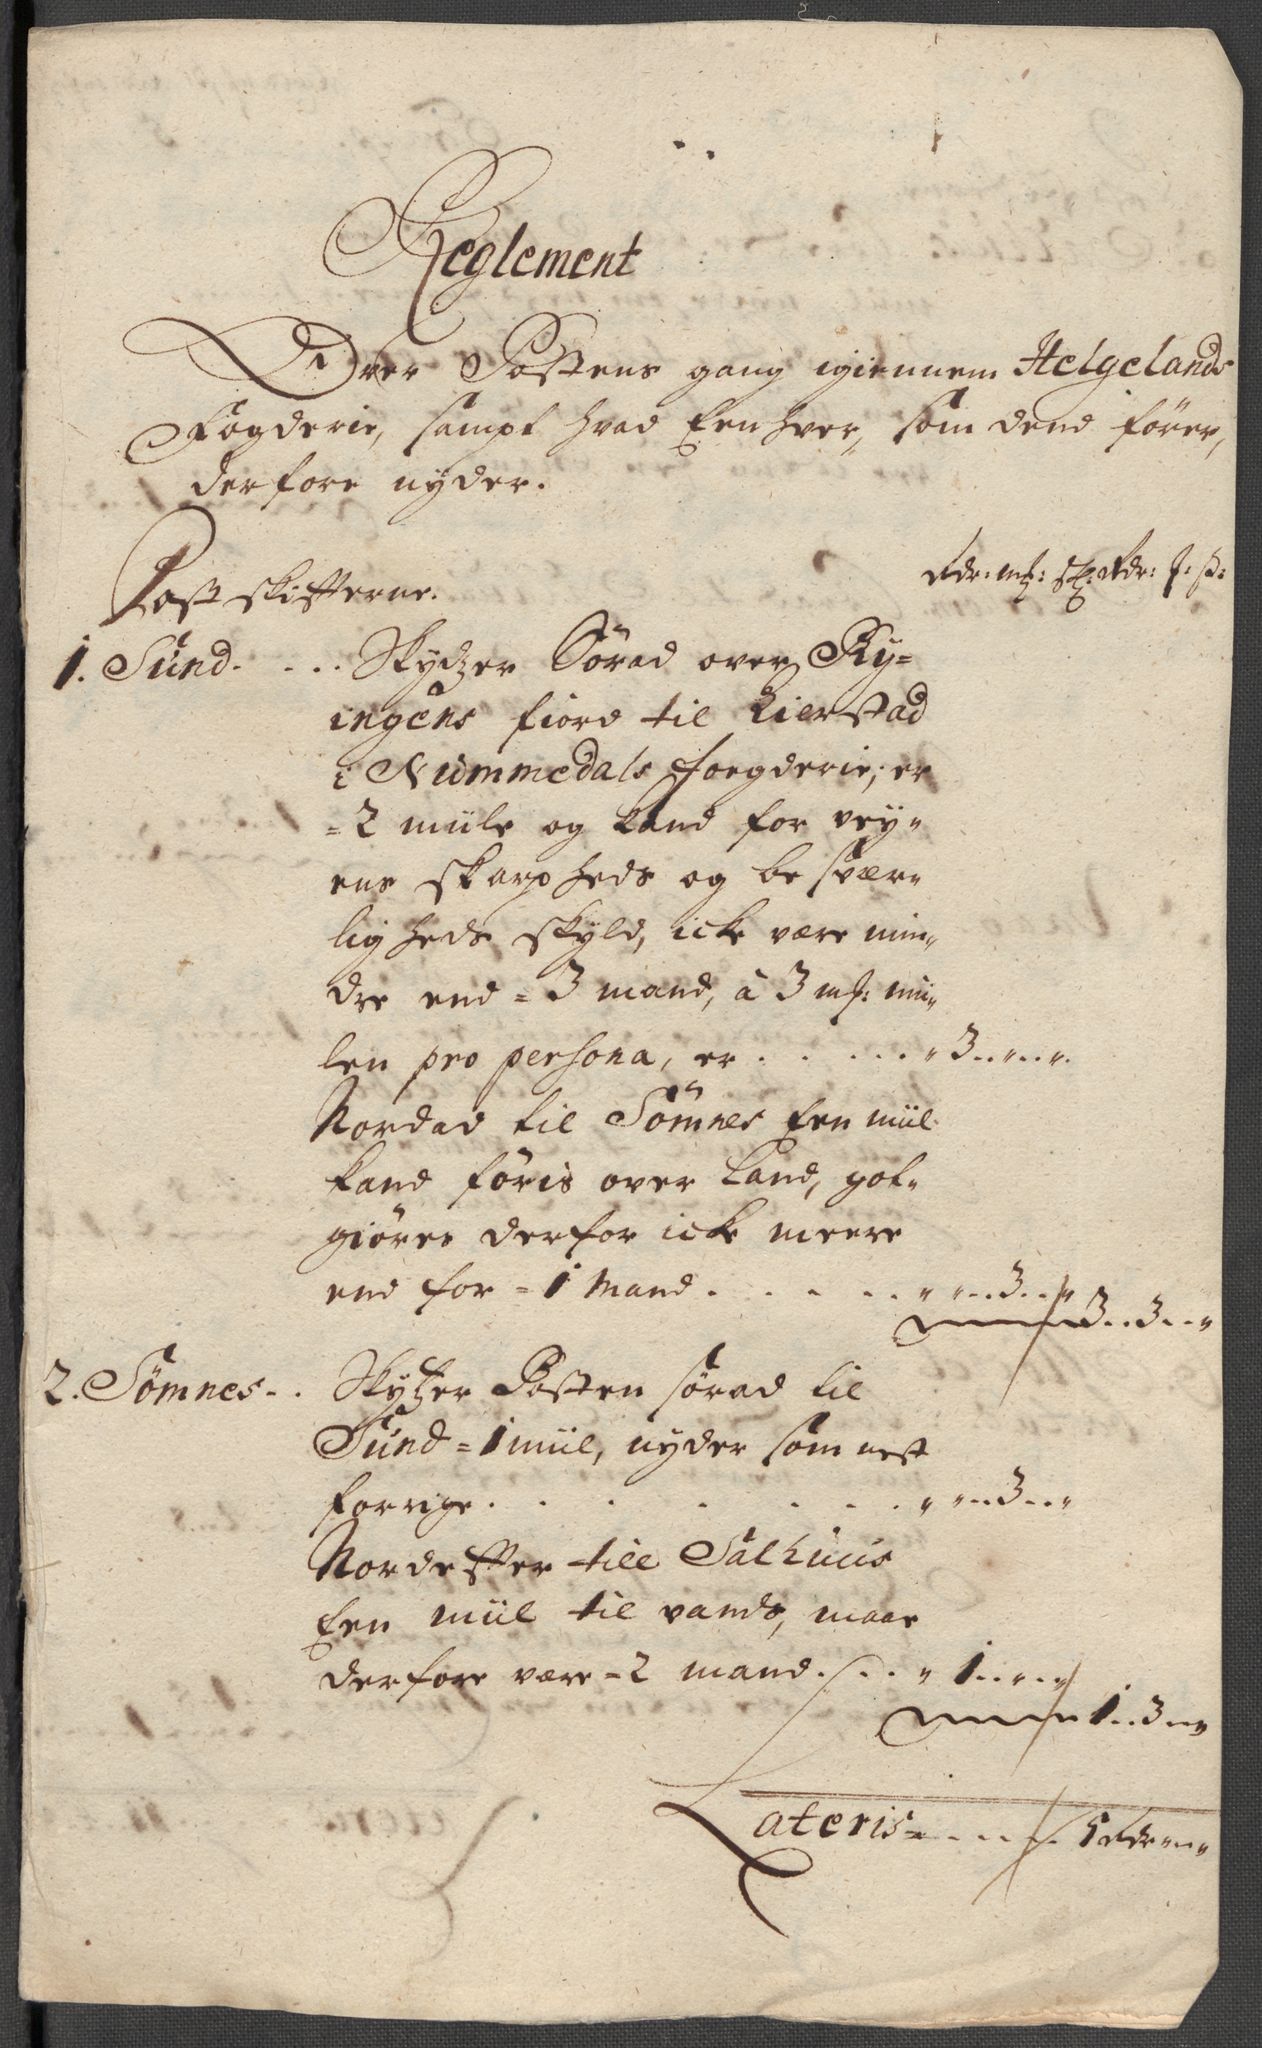 Reglement
Over Postens gang igiennem Helgelands
Fogderie, sampt hvad Een hver, som dend förer,
derfore nyder.
Postskifterne.
Rdr: m/: sk: Rdr: /: s:
1. Sund. . . . Skydzer Sörad over Ry=
ingens fiord til Kierstad
i Nummedals foegderie, er
=2 miile og kand for vey„
ens skarpheds og besvær„
ligheds skyld, icke være min„
dre end = 3 mand, à 3 m/: mii„
len pro persona, er . . . . . „ 3..„..„.
Nordad til Sömnes Een miil
kand föris over Land, got„
giöres derfor icke meere
end for = 1 Mand . . . . . „ „..3..„
3..3..„
2. Sömnes. . Skytzer Posten sörad til
Sund = 1 miil, nyder som nest
forrige . . . . . . . „ „..3..„
Nordefter till Salhuus
Een miil til vands, maae
derfore være = 2 mand . . . „ 1..„..„
1..3..„
Lateris . . . . . 5 Rdr „..„